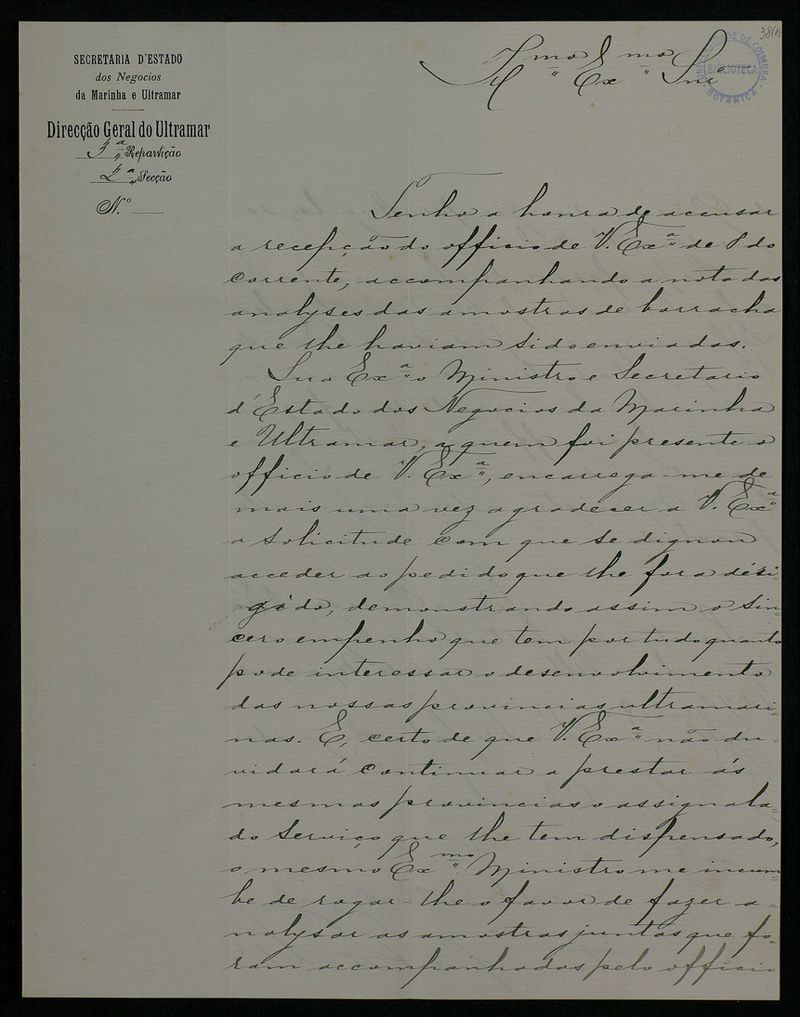 38(1)
UNIVERSIDADE DE COIMBRA
BIBLIOTECA
BOTANICA
SECRETARIA D'ESTADO
dos Negocios
da Marinha e Ultramar
Direcção Geral do Ultramar
3ª Repartição
2ª Secção
N.º
Illmo Exmo Snr
Tenho a honra de accusar
a recepção do officio de V. Exª de 8 do
corrente, accompanhando a nota das
analyses das amostras de borracha
que lhe haviam sido enviadas.
Sua Exª o Ministro e Secretario
d'Estado dos Negocios da Marinha
e Ultramar, a quem foi presente o
officio de V. Exª, encarrega-me de
mais uma vez agradecer a V. Exª
a solicitude com que se dignou
acceder ao pedido que lhe fora diri-
gido, demonstrando assim o sin-
cero empenho que tem por tudo quanto
pode interessar o desenvolvimento
das nossas provincias ultramari-
nas. E, certo de que V. Exª não du-
vidará continuar a prestar ás
mesmas provincias o assignala-
do serviço que lhe tem dispensado,
o mesmo Exmo Ministro me incum-
be de rogar-lhe o favor de fazer a-
nalysar as amostras juntas que fo-
ram accompanhadas pelo officio